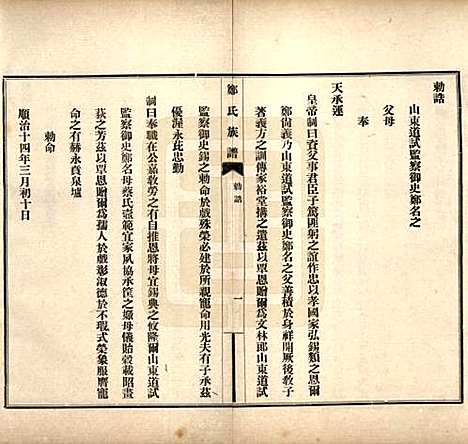 勅誥
山東道試監察御史鄭名之
父母
奉
天承運
皇帝制曰資父事君臣子篤匪躬之誼作忠以孝國家弘錫類之恩爾
鄭尙義乃山東道試監察御史鄭名之父善積於身祥開厥後敎子
著義方之訓傳家裕堂搆之遺茲以覃恩贈爾爲文林郎山東道試
鄭氏族譜
勅誥
一
監察御史錫之勅命於戲殊榮必建於所親寵命用光夫有子承茲
優渥永庇忠勤
制曰奉職在公嘉敎勞之有自推恩將母宜錫典之攸隆爾山東道試
監察御史鄭名母蔡氏壼範宜家夙協承筐之媺母儀貽穀載昭畫
荻之芳茲以覃恩贈爾爲孺人於戲彰淑德於不瑕式榮象服膺寵
命之有赫永賁泉壚
勅命
順治十四年三月初十日